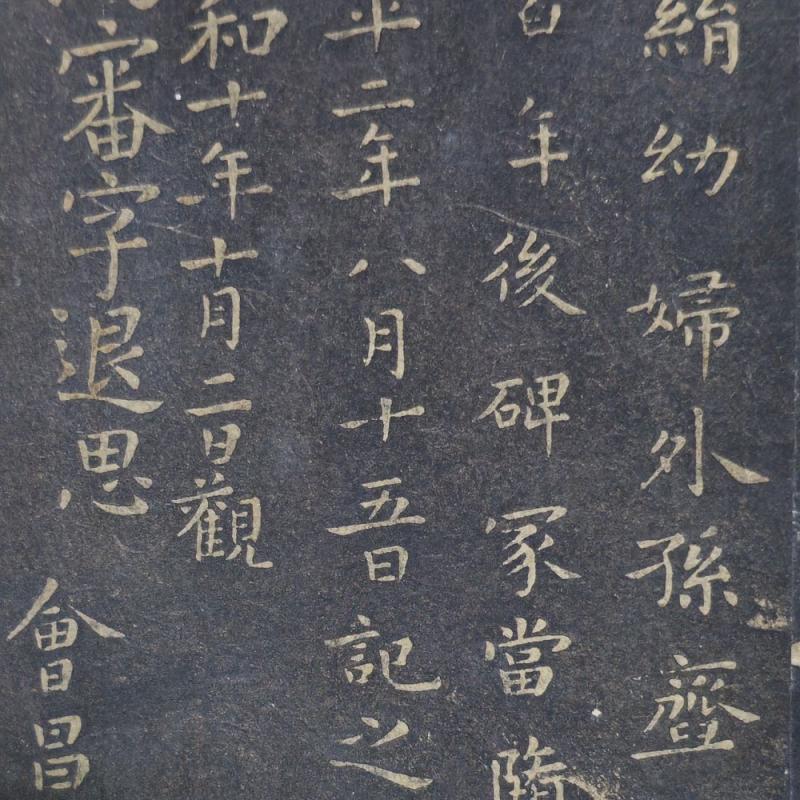 絹幼婦外孫韲
百年後碑冢當隋
平二年八月十五日記之
和十年十月二日觀
審字退思 會昌